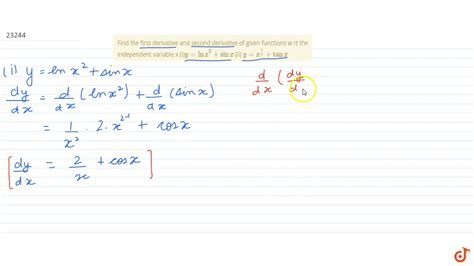 23244
Find the first derivative and second derivative of given functions w rt the
independent variable x (i)y = ln x² + sin x (ii) y = x^{1/2} + tan x
(i) y = ln x² + sin x
dy/dx = d/dx (ln x²) + d/dx (sin x)
d/dx (dy/d
= 1/x² · 2 · x^{2-1} + cos x
[dy/dx = 2/x + cos x]